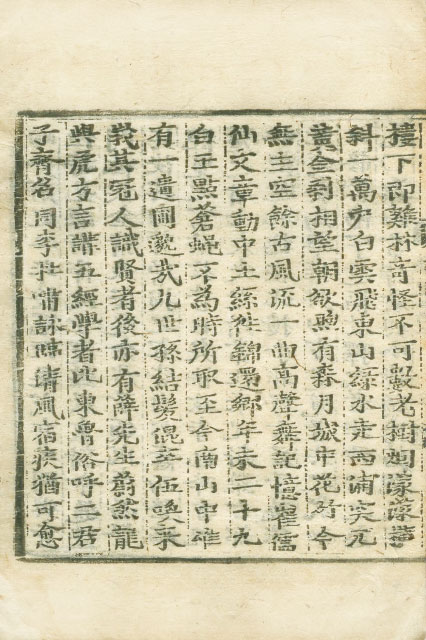 樓下即雞林奇怪不可數老樹烟濛濛
斜一萬戶白雲飛東山綠水走西浦突兀
黃金刹相望朝欲煦有森月城中花月今
無主空餘古風流一曲高聲舞記憶崔儒
仙文章動中土往錦還鄉年未二十九
白玉點蒼蝿不為時所取至今南山中唯
有一遺圃邈哉九世孫結髮混伍喚來
峩其冠人識賢者後亦有薛先生蔚然龍
與虎方言講五經學者比東魯俗呼二君
子齊名同李杜嘗詠臨清風宿疾猶可愈